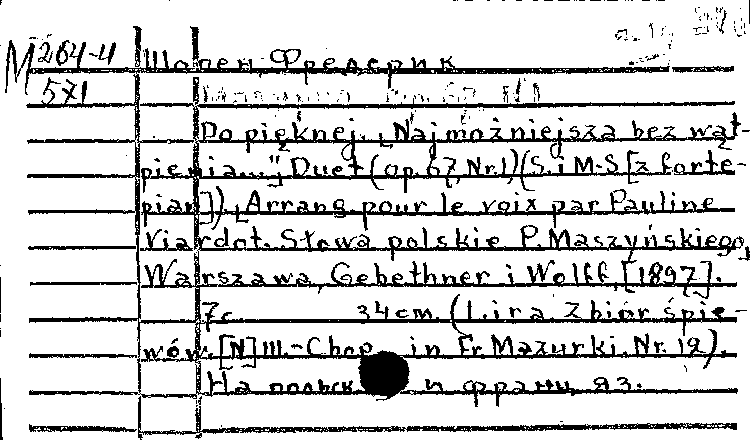 М 264-4 Шопен, Фредерик
571 Мазурка op. 67 №1
Do pięknej. „Najmożniejsza bez wąt-
pienia...", Duet (op. 67, Nr. 1) (S. i M-S [z forte-
pian]). [Arrang pour le voix par Pauline
Viardot. Słowa polskie P. Maszyńskiego,
Warszawa, Gebethner i Wolff, [1897].
7c. 34cm. (Lira Zbiór śpie-
wów. [N] III.-Chop in Fr. Mazurki. Nr. 12).
На польск и франц. яз.